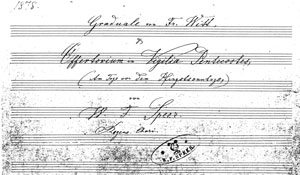 1878.
Graduale von Fr. Witt.
&
Offertorium in Vigilia Pentecostes,
(Am Tage vor dem Pfingstsonntage)
von
W. F. Speer.
Regens Chori.